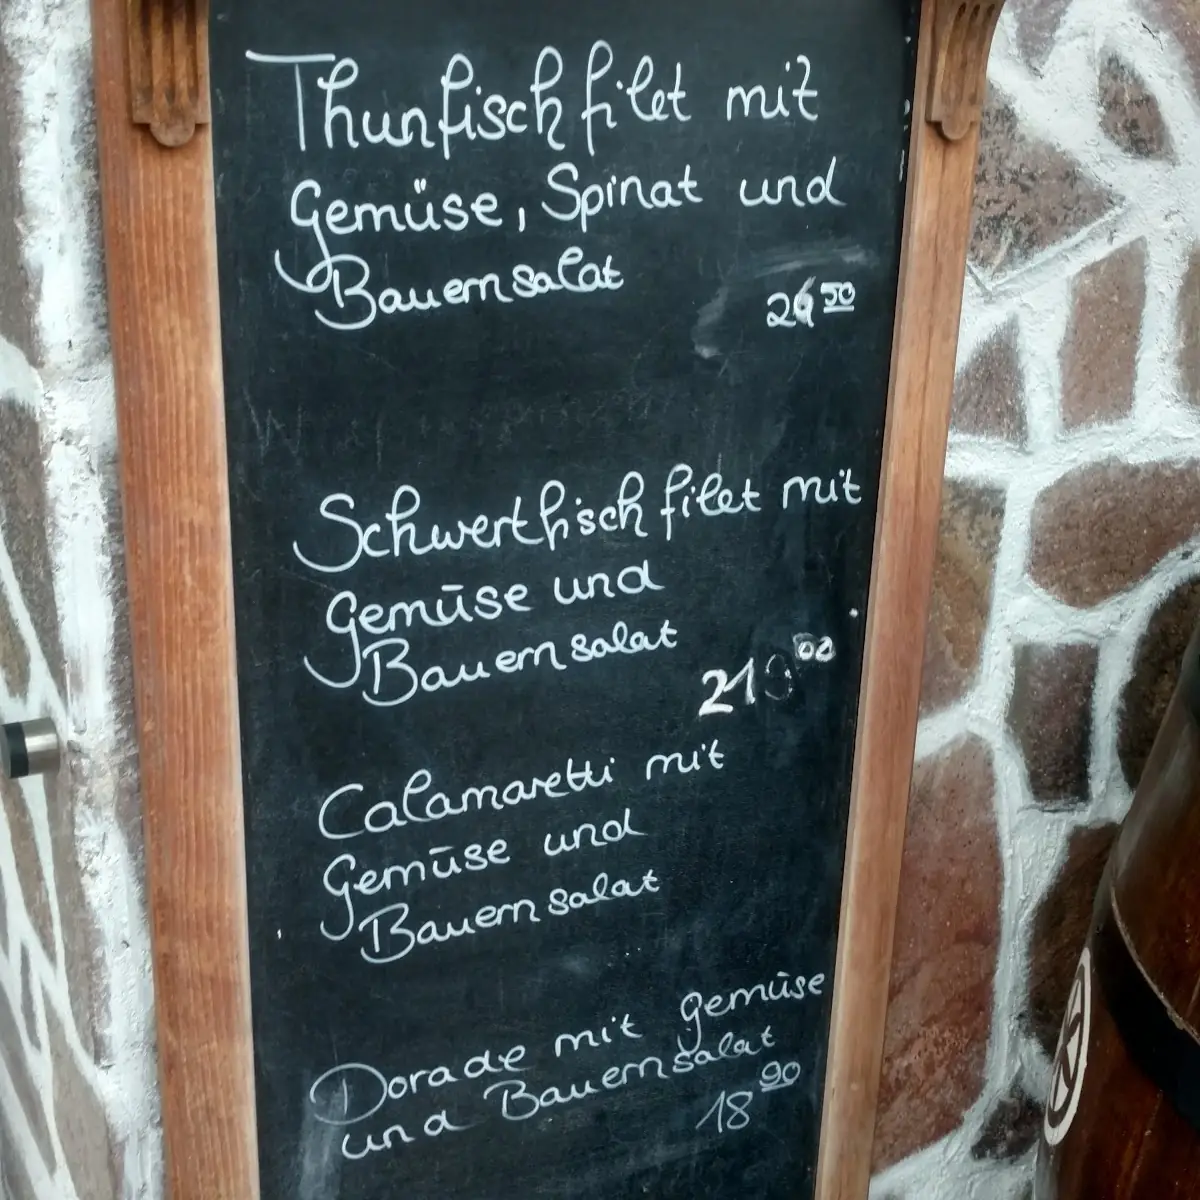 Thunfischfilet mit
Gemüse, Spinat und
Bauernsalat
26 50
Schwertfischfilet mit
Gemüse und
Bauernsalat
21 00
Calamaretti mit
Gemüse und
Bauernsalat
Dorade mit Gemüse
und Bauernsalat
18 90